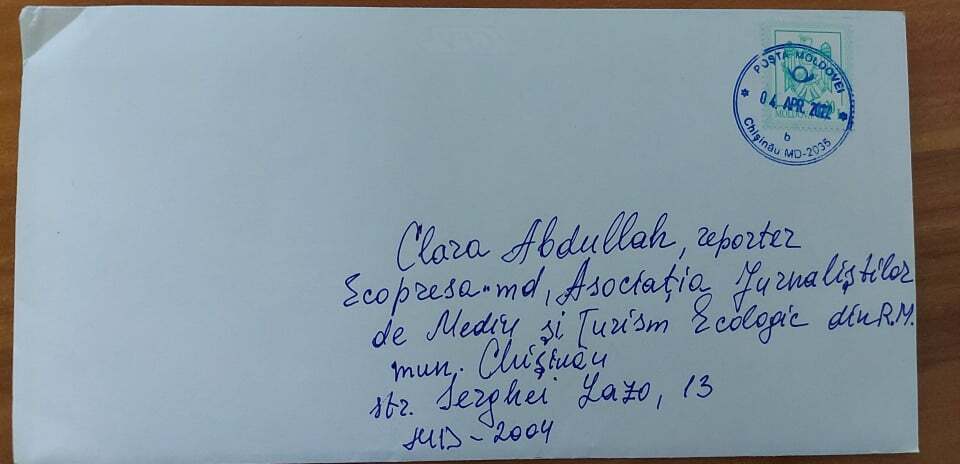 POȘTA MOLDOVEI
04. APR. 2022
b
Chișinău MD-2035
MOLDOVA
Clara Abdullah, reporter
Ecopresa.md, Asociația Jurnaliștilor
de Mediu și Turism Ecologic din R.M.
mun. Chișinău
str. Serghei Lazo, 13
MD-2004